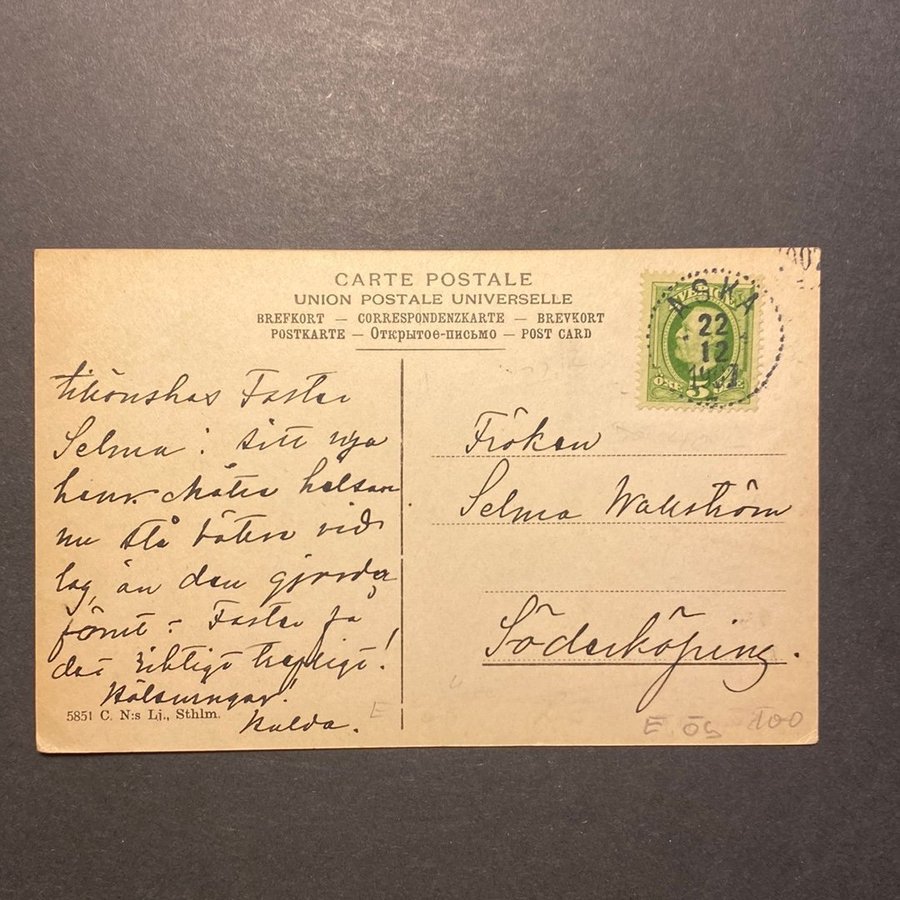 CARTE POSTALE
UNION POSTALE UNIVERSELLE
BREFKORT — CORRESPONDENZKARTE — BREVKORT
POSTKARTE — Открытое-письмо — POST CARD
ASKA
22
12
5
tillönskas Faster
Selma! Ditt nya
helsan
nu stå bättre vid
lag, än den gjorde
förut - Faster får
det riktigt trefligt!
Hälsningar!
Hulda.
5851 C. N:s Lj., Sthlm.
Fröken
Selma Wallström
Söderköping.
E ÖG 100
E